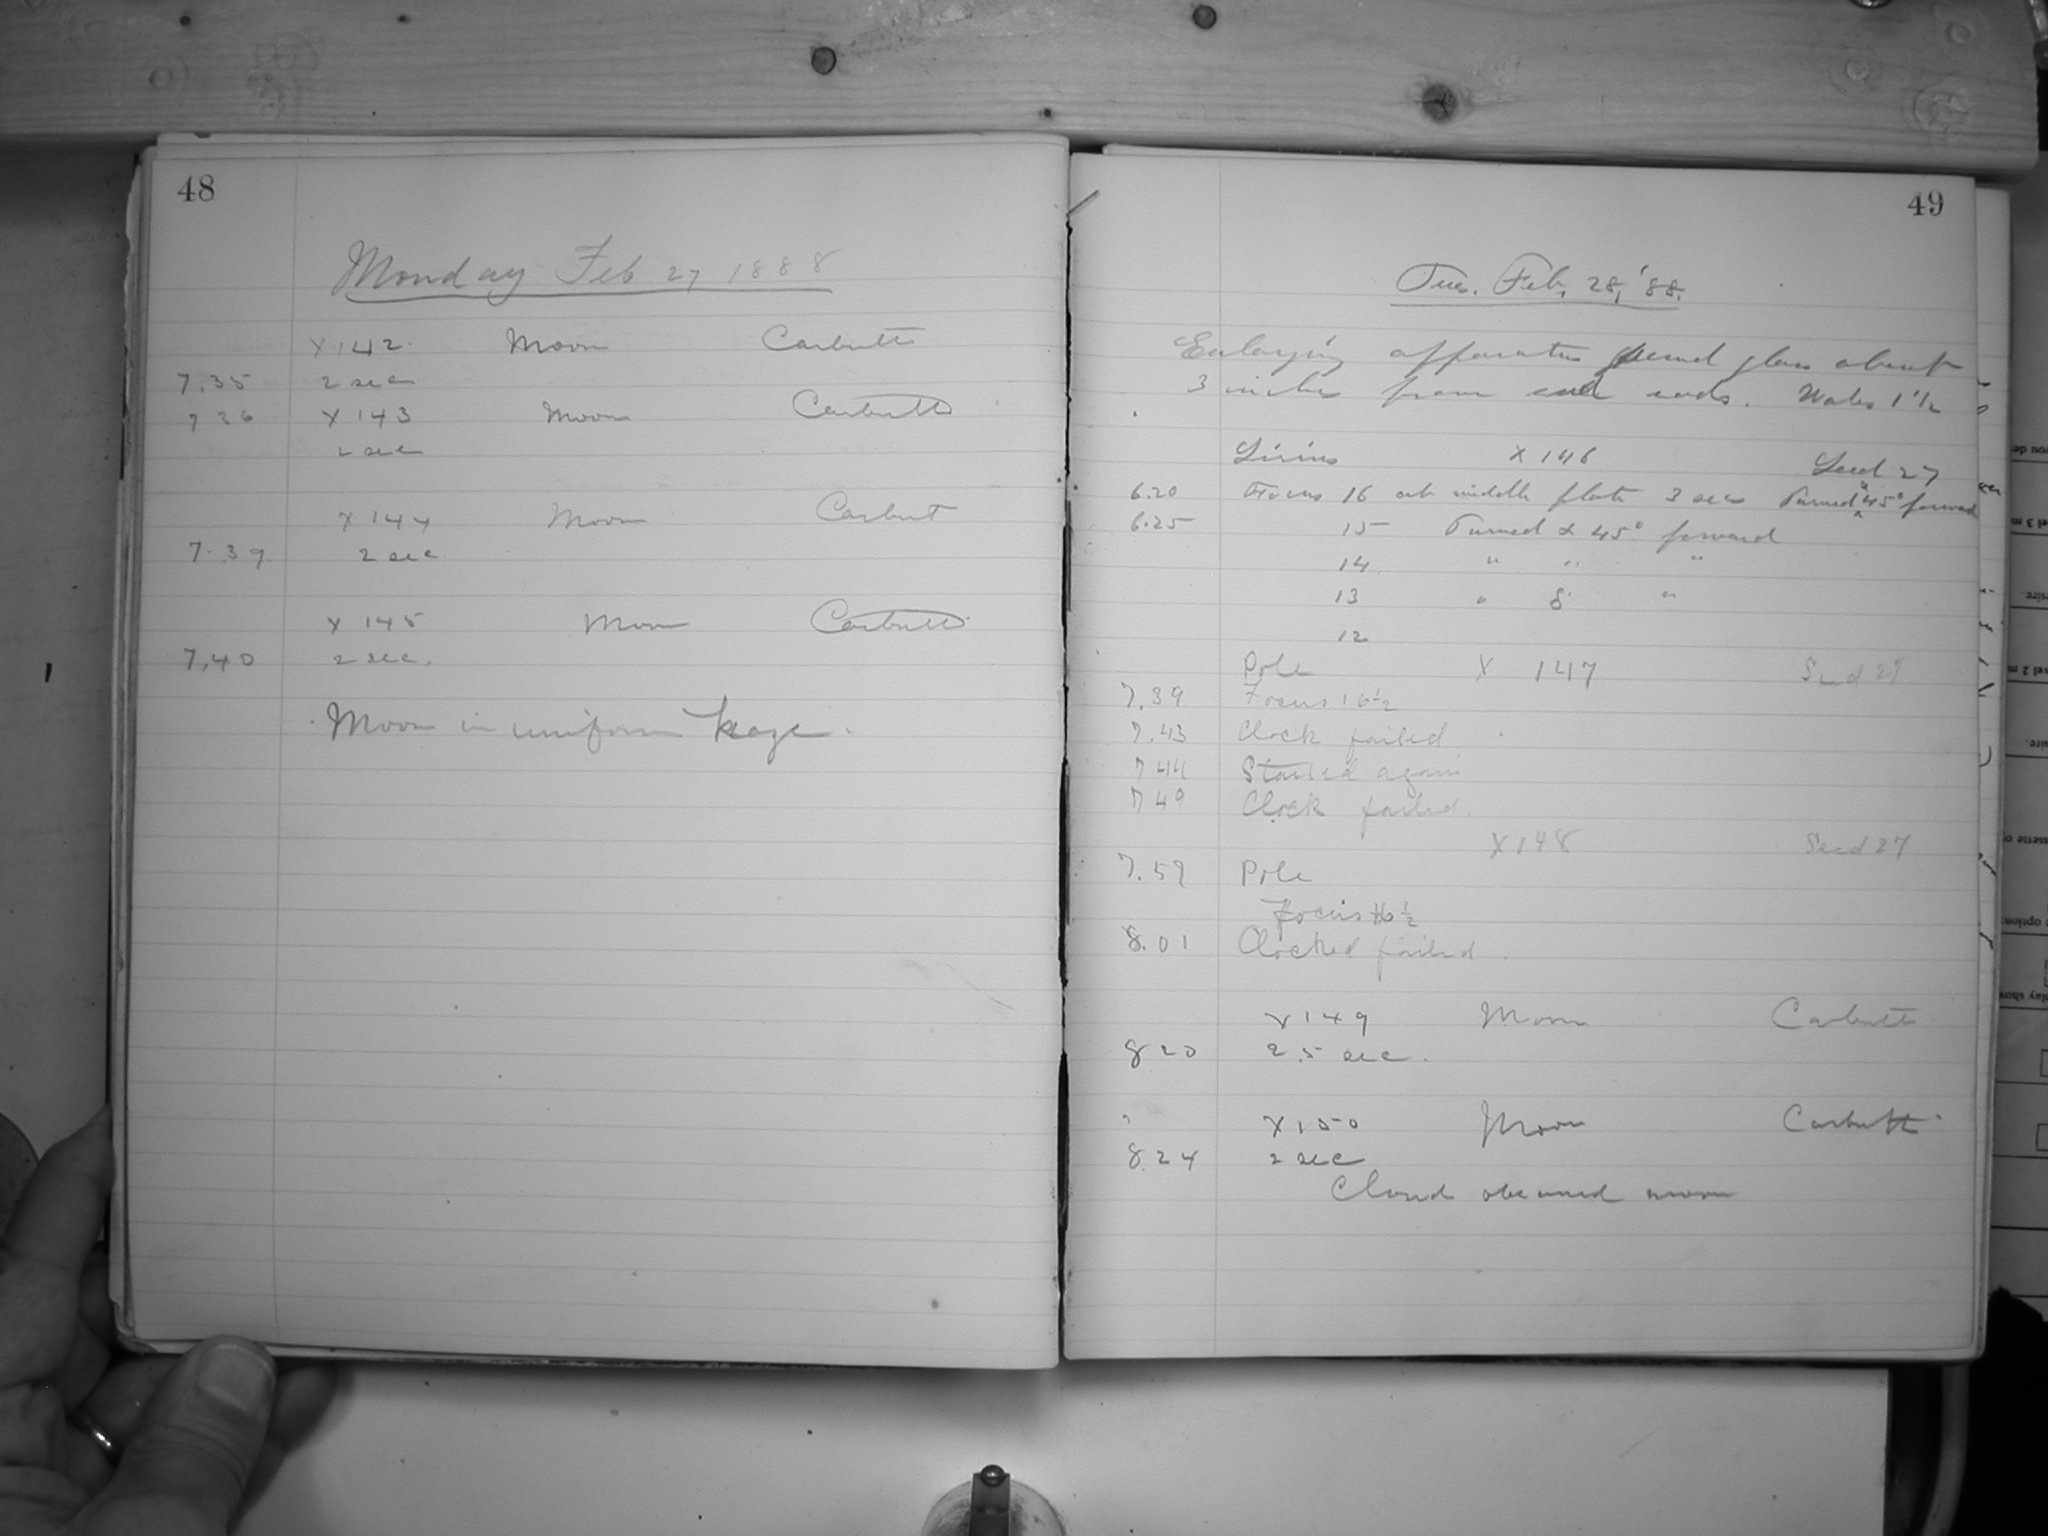 48
Monday Feb 27 1888
X142. Moon Carbutt
7.35 2 sec
7 36 X 143 Moon Carbutt
2 sec
X 144 Moon Carbutt
7.39 2 sec
X 145 Moon Carbutt
7.40 2 sec.
Moon in uniform haze.
49
Tues. Feb. 28, '88.
Enlarging apparatus ground glass about
3 inches from end rods. Wales 1 1/2
Sirius X 146 Seed 27
6.20 Focus 16 at middle plate 3 secs Turned α 45° forward
6.25 15 Turned α 45° forward
14 " " "
13 " δ "
12
Pole X 147 Seed 27
7.39 Focus 16½
7.43 Clock failed
7 44 Started again
7 49 Clock failed.
X 148 Seed 27
7.59 Pole
Focus 16 ½
8.01 Clocked failed.
X 149 Moon Carbutt
8 20 2.5 sec.
X150 Moon Carbutt
8.24 2 sec
Cloud obscured moon